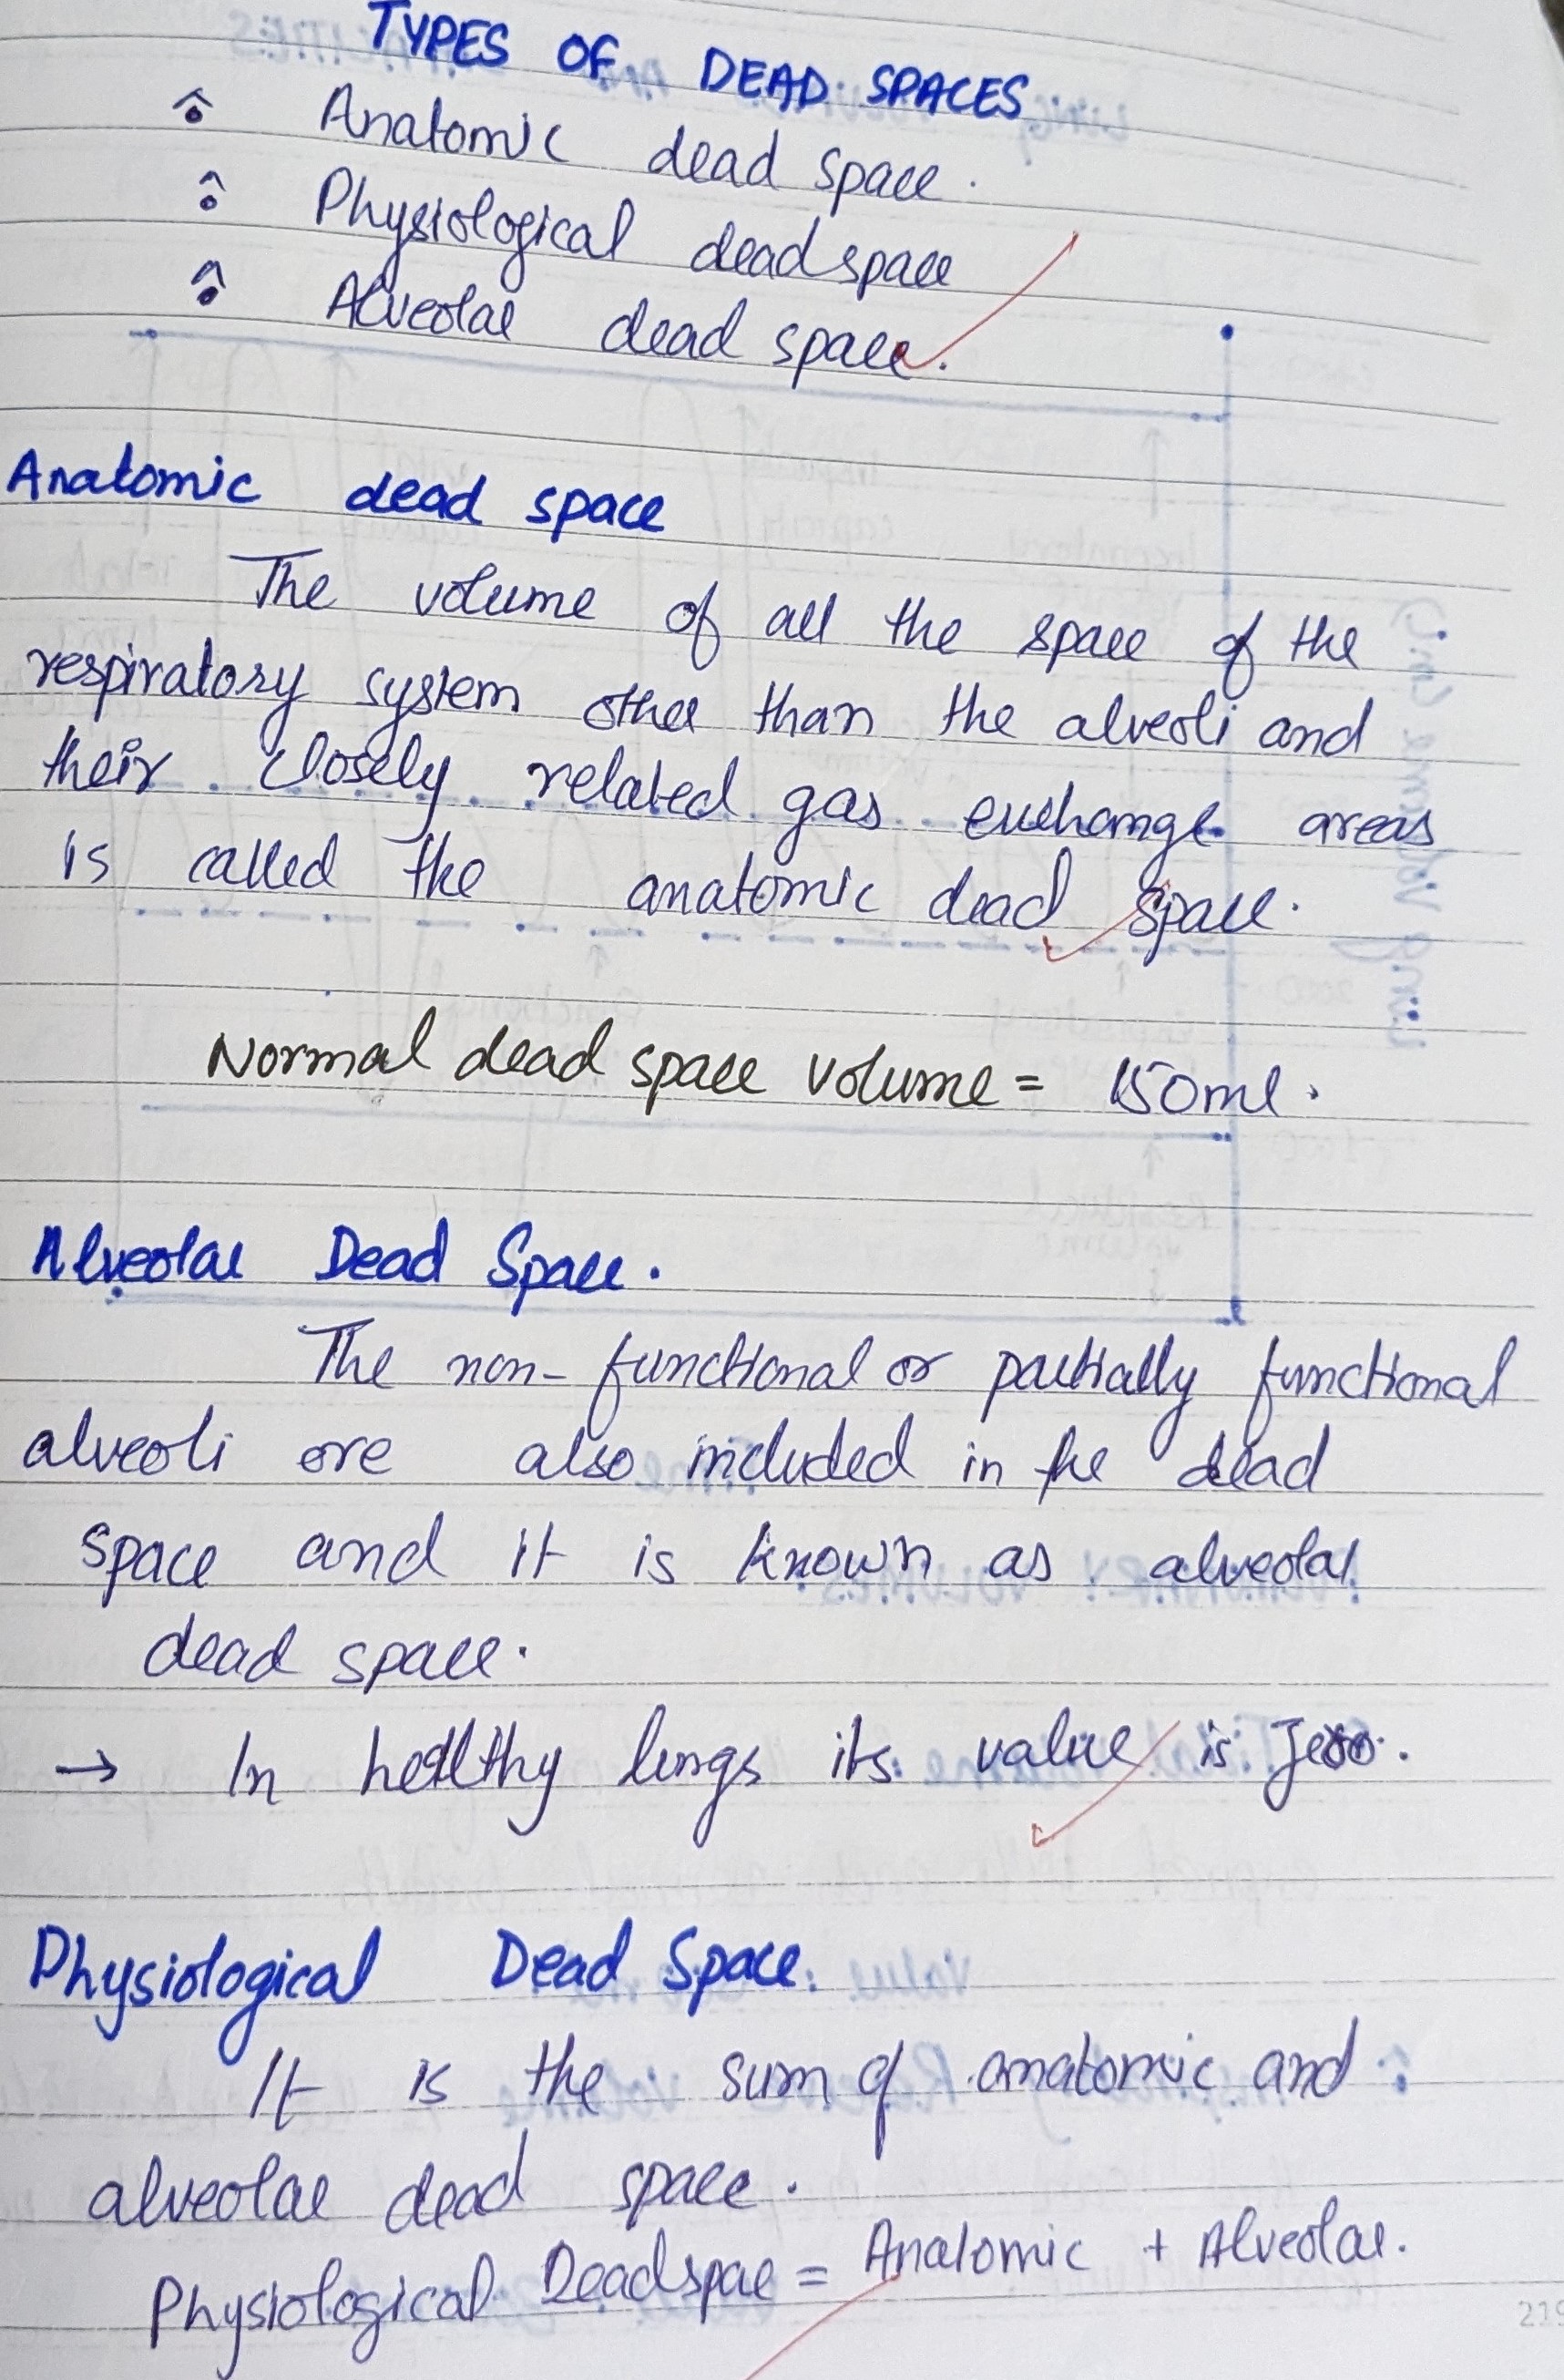 TYPES OF DEAD SPACES
Anatomic dead space.
Physiological dead space
Alveolar dead space.
Anatomic dead space
The volume of all the space of the
respiratory system other than the alveoli and
their closely related gas exchange areas
is called the anatomic dead space.
Normal dead space volume = 150ml.
Alveolar Dead Space.
The non-functional or partially functional
alveoli are also included in the dead
space and it is known as alveolar
dead space.
→ In healthy lungs its value is zero.
Physiological Dead Space.
It is the sum of anatomic and
alveolar dead space.
Physiological Deadspae = Anatomic + Alveolar.
219